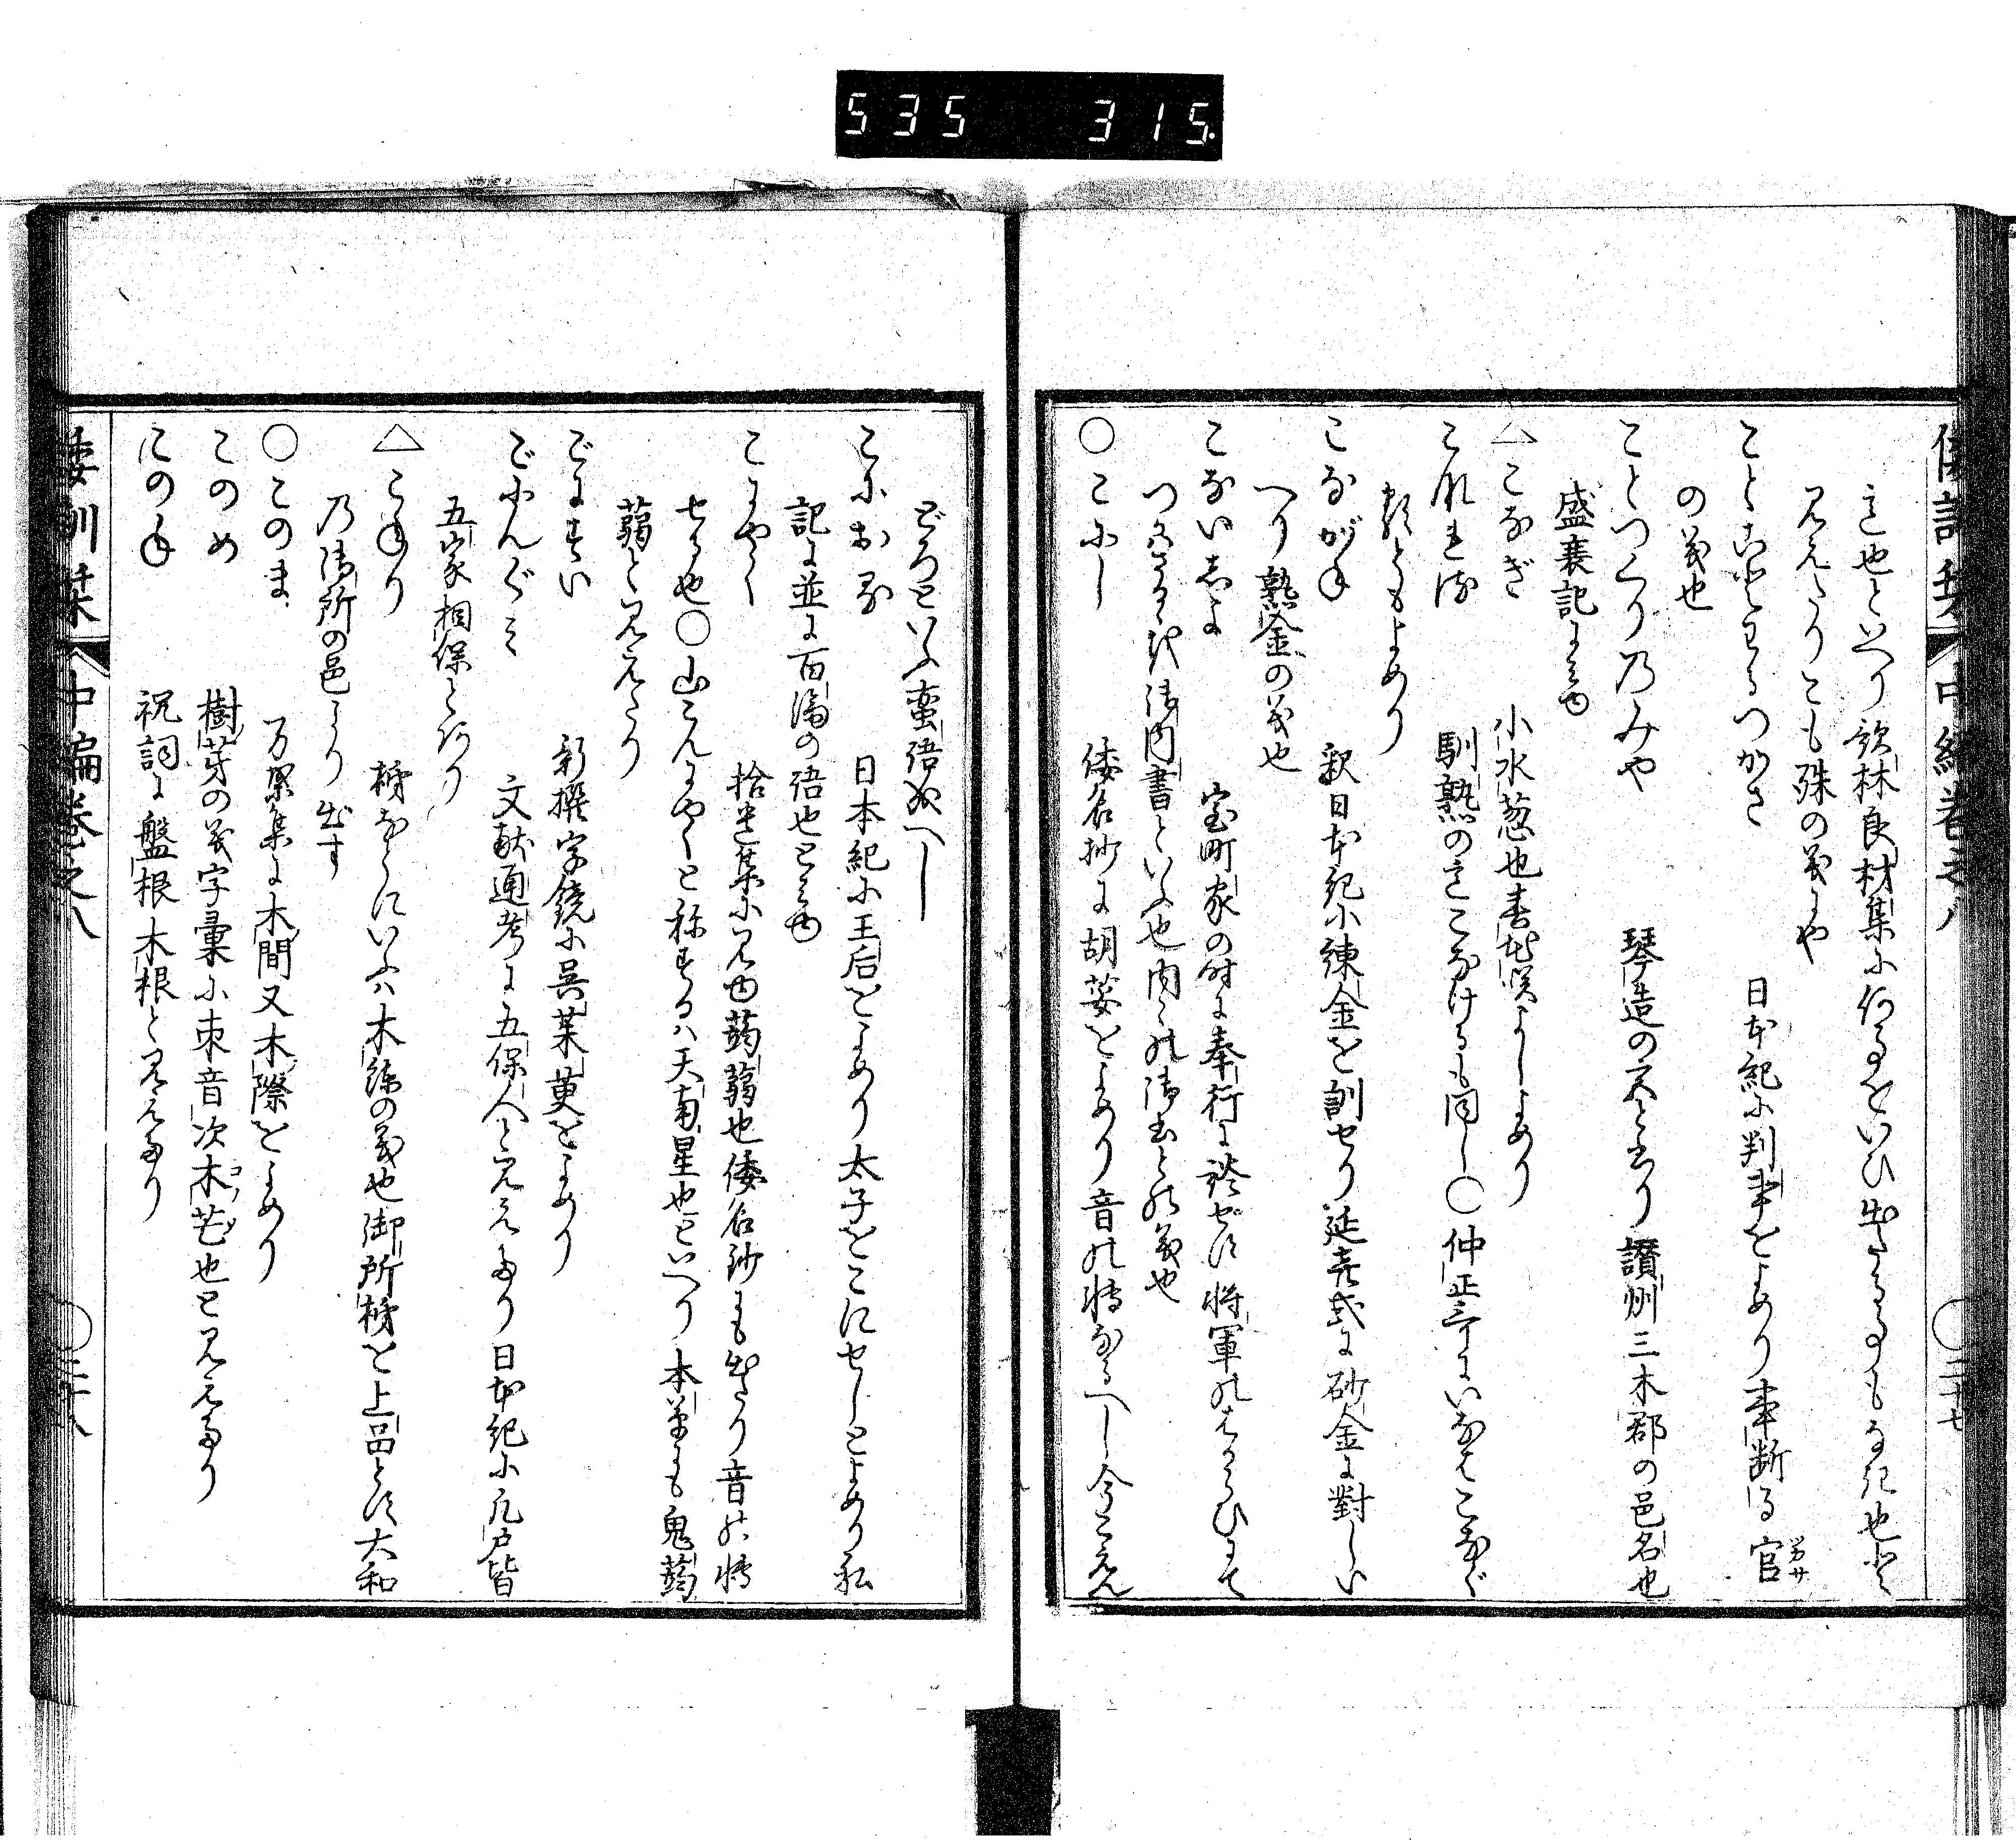 535 315
倭訓栞 中編巻之八 ○二十七
之也といへり歌林良材集に何事をいひ出たる事もなき也と
見えたりこも殊の義にや
ことわるつかさ 日本紀に判事をよめり事断る官
の義也
ことつくりのみや 琴造の宮と書り讃州三木郡の邑名也
盛衰記に見ゆ
△こなぎ 小水葱也春花咲よしよめり
これる 馴熟の意こなけるも同し○仲正哥にいなばこなぐ
共よめり
こながね 釈日本紀に練金を訓せり延喜式に砂金に對しい
へり熟金の義也
こないしよ 室町家の時に奉行に詮ぜず将軍のはからひにて
つかはさるゝを御内書といふ也内々の御書との義也
○こにし 倭名抄に胡荽をよめり音の轉なるへし今こえん
どろといふ蛮語なへし
こにおる 日本紀に王后をよめり太子をこにせしとよめり私
記に並に百済の語也と見ゆ
こにやく 拾遺集に見ゆ蒟蒻也倭名鈔にも出たり音の轉
せる也○山こんにやくと称するは天南星也といへり本草にも鬼蒟
蒻と見えたり
ごにすい 新撰字鏡に呉茱萸をよめり
ごにんぐみ 文献通考に五保人と見えたり日本紀に凡戸皆
五家相保とあり
△こねり 柿などにいふは木練の義也御所柿を上品とす大和
乃御所の邑より出す
○このま 万葉集に木間又木際をよめり
このめ 樹芽の義字彙に朿音次木芒也と見えたり
このね 祝詞に盤根木根と見えたり
倭訓栞 中編巻之八 ○二十八